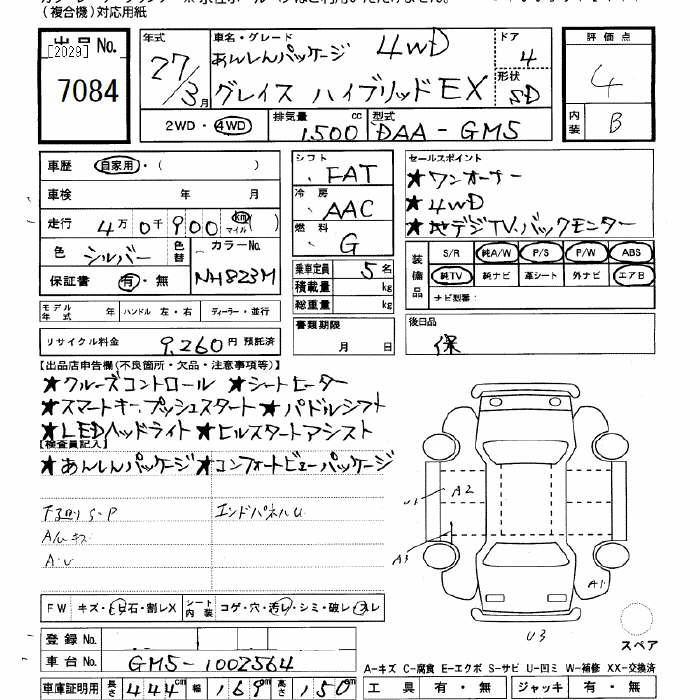 (複合機)対応用紙
出品No.
[2029]
7084
年式 車名・グレード ドア 評価点
27/3月 あんしんパッケージ 4WD 4 4
グレイス ハイブリッドEX 形状 SD
2WD・4WD 排気量 1500 cc 型式 DAA-GM5 内装 B
車歴 自家用・( )
車検 年 月
走行 4万0千900 km マイル( )
色 シルバー 色替 カラーNo. NH823M
保証書 有・無
シフト FAT
冷房 AAC
燃料 G
乗車定員 5名
積載量 kg
総重量 kg
セールスポイント
★ワンオーナー
★4WD
★地デジTV.バックモニター
装備品 S/R 純A/W P/S P/W ABS
純TV 純ナビ 革シート 外ナビ エアB
ナビ型番:
モデル年式 年 ハンドル 左・右 ディーラー・並行
リサイクル料金 9,260円 預託済
書類期限 月 日
後日品
保
【出品店申告欄(不良箇所・欠品・注意事項等)】
★クルーズコントロール ★シートヒーター
★スマートキー.プッシュスタート ★パドルシフト
★LEDヘッドライト ★ヒルスタートアシスト
【検査員記入】
★あんしんパッケージ★コンフォートビューパッケージ
下回りS-P エンドパネルU
A/Wキズ
A・U
U1 A2
A3
A1
U3
FW キズ・ヒビ石・割レX シート内装 コゲ・穴・汚レ・シミ・破レ・スレ
登録No.
車台No. GM5-1002564
スペア
車庫証明用 長さ 444cm 幅 169cm 高さ 150cm
A-キズ C-腐食 E-エクボ S-サビ U-凹ミ W-補修 XX-交換済
工具 有・無 ジャッキ 有・無